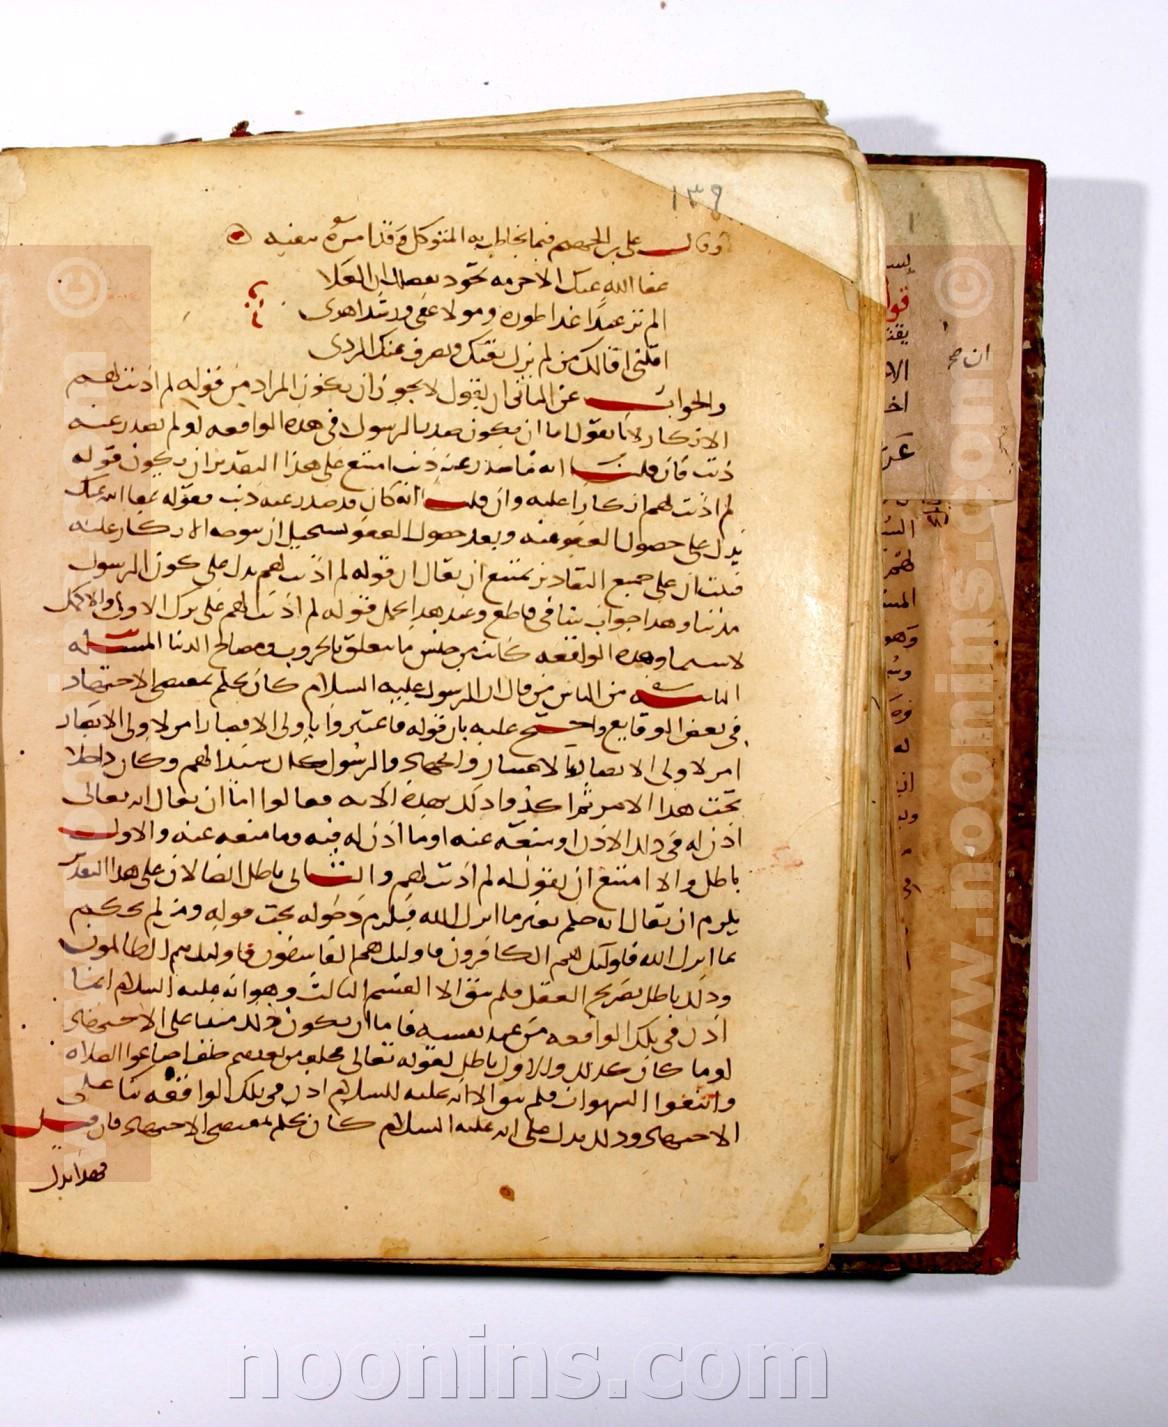 ١٣٩
وقال على بن الجهم فيما يخاطب به المتوكل وقد امره بنفيه
عفا الله عنك الا حرمه تعود بفضلك ان ابعدا
الم تر عبدا عدا طوره ومولا عفى ورشدا هدى
اقلنى اقالك من لم يزل يقيك ويصرف عنك الردى
والجواب عن الثانى ان يقول لا يجوز ان يكون المراد من قوله لم اذنت لهم
الانكار لانا نقول اما ان يكون صدر من الرسول فى هذه الواقعه او لم يصدر عنه
ذنب فان قلت انه ما صدر عنه ذنب امتنع على هذا التقدير ان يكون قوله
لم اذنت لهم انكارا عليه وان قلت انه كان قد صدر عنه ذنب فقوله عفا الله عنك
يدل على حصول العفو عنه وبعد حصول العفو يستحيل ان يتوجه الانكار عليه
فثبت ان على جميع التقادير يمتنع ان يقال ان قوله لم اذنت لهم يدل على كون الرسول
مذنبا وهذا جواب شافى قاطع وعند هذا يحمل قوله لم اذنت لهم على ترك الاولى والاكمل
لا سيما وهذه الواقعه كانت من جنس ما يتعلق بالحروب ومصالح الدنيا المسئله
الثانيه من الناس من قال ان الرسول عليه السلام كان يحكم بمقتضى الاجتهاد
فى بعض الوقايع واحتج عليه بان قوله فاعتبروا يا اولى الابصار امر لاولى الابصار
امر لاولى الابصار بالاعتبار والاجتهاد والرسول كان سيدا لهم وكان داخلا
تحت هذا الامر ثم اكدوا ذلك بهذه الايه فقالوا اما ان يقال انه تعالى
اذن له فى ذلك الاذن او منعه عنه او ما اذن له فيه وما منعه عنه والاول
باطل والا امتنع ان يقول له لم اذنت لهم والثانى باطل ايضا لان على هذا التقدير
يلزم ان يقال انه حكم بغير ما انزل الله فيلزم دخوله تحت قوله ومن لم يحكم
بما انزل الله فاوليك هم الكافرون فاوليك هم الفاسقون فاوليك هم الظالمون
وذلك باطل بصريح العقل فلم يبق الا القسم الثالث وهو انه عليه السلام انما
اذن فى تلك الواقعه من عند نفسه فاما ان يكون ذلك مبنيا على الاجتهاد
او ما كان كذلك والاول باطل لقوله تعالى فخلف من بعدهم خلف اضاعوا الصلاه
واتبعوا الشهوات فلم يبق الا انه عليه السلام اذن فى تلك الواقعه بنا على
الاجتهاد وذلك يدل على انه عليه السلام كان يحكم بمقتضى الاجتهاد فان قيل
فهذا يدل
ان صح
www.noonins.com ©
noonins.com